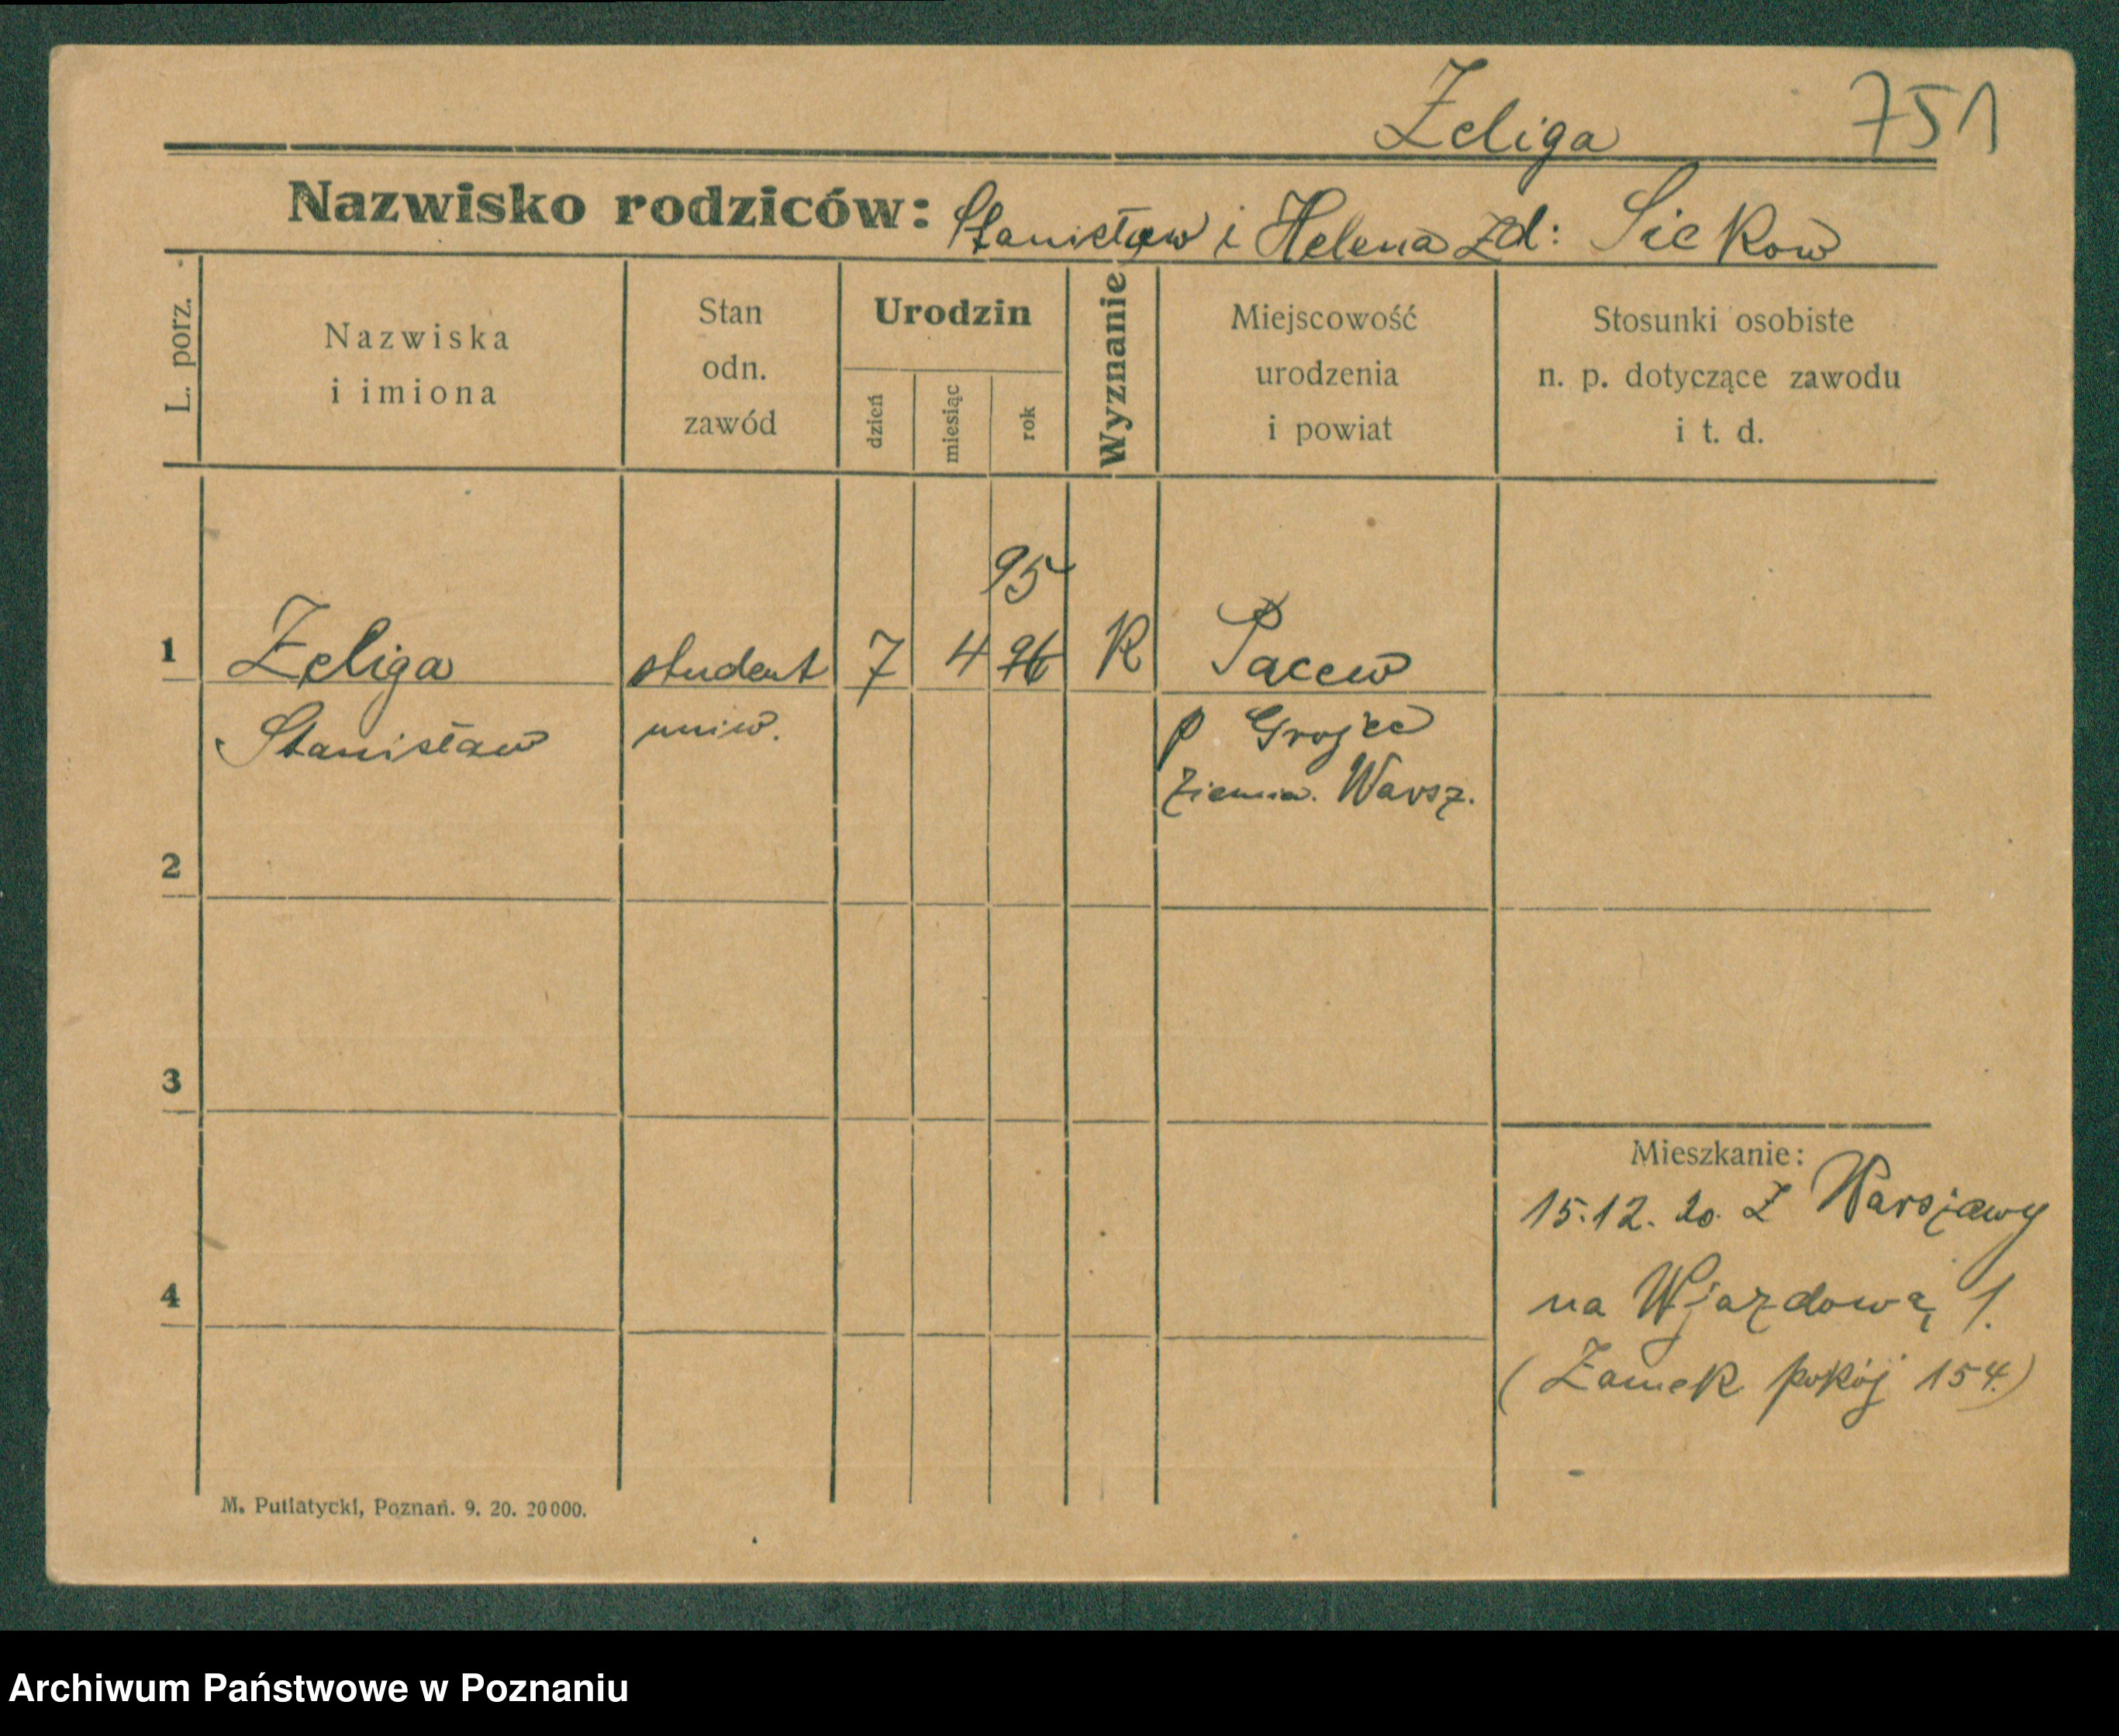 Żeliga 751
Nazwisko rodziców: Stanisław i Helena zd: Siekow
L. porz.
Nazwiska
i imiona
Stan
odn.
zawód
Urodzin
dzień
miesiąc
rok
Wyznanie
Miejscowość
urodzenia
i powiat
Stosunki osobiste
n. p. dotyczące zawodu
i t. d.
95
1 Żeliga student 7 4 96 K Pacew
Stanisław uniw. p Grojec
Ziemia. Warsz.
2
3
Mieszkanie:
15.12.20. Z Warszawy
4 na Wjazdową 1.
(Zamek pokój 154.)
M. Putiatycki, Poznań. 9. 20. 20000.
Archiwum Państwowe w Poznaniu